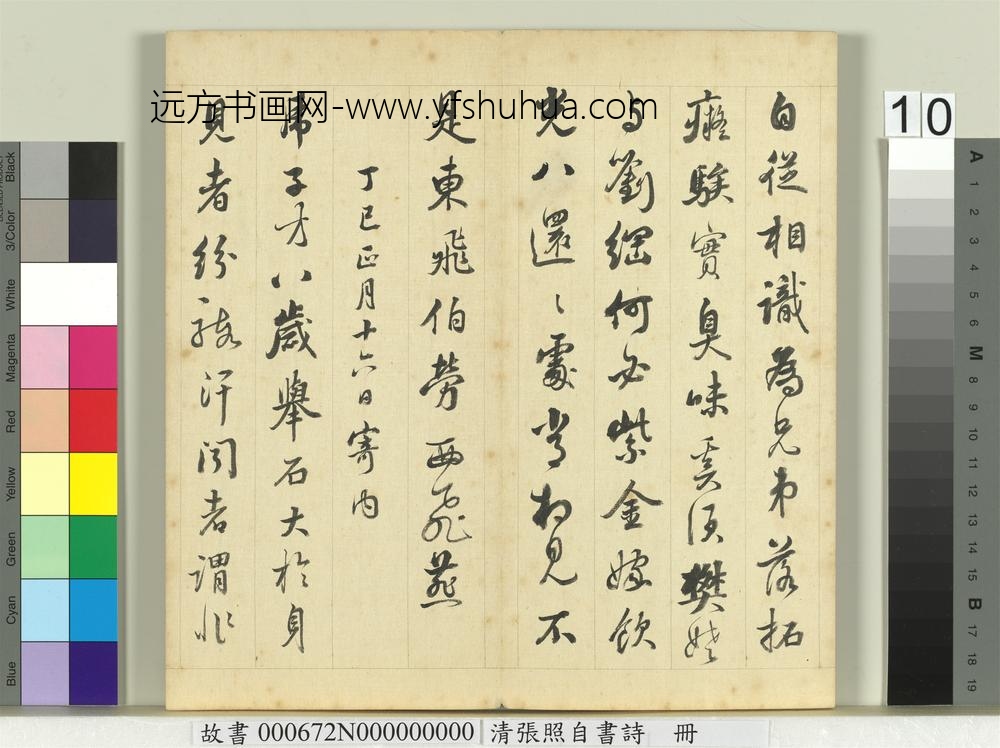 自從相識為兄弟落拓
癡騃實臭味奚須樊姥
与劉綱何必紫金嫁飲
光八還〻處常相見不
是東飛伯勞西飛燕
丁巳正月十六日寄内
子才八歲舉石大於身
見者紛駭汗聞者謂非
远方书画网-www.yfshuhua.com
10
3/Color Black
White
Magenta
Red
Yellow
Green
Cyan
Blue
A 1 2 3 4 5 6 M 8 9 10 11 12 13 14 15 B 17 18 19
故書 000672N000000000 清張照自書詩 冊